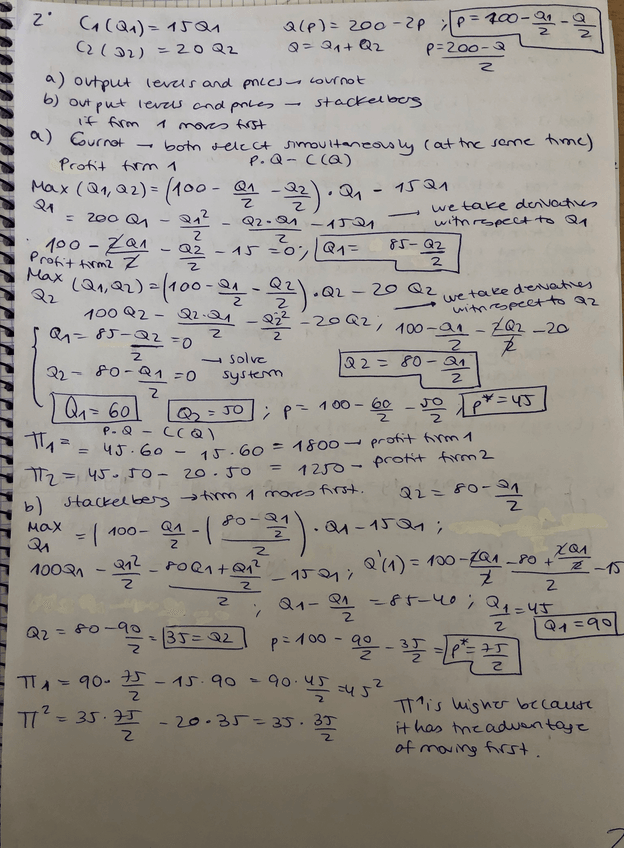 2· C1(Q1) = 15Q1 Q(p) = 200 - 2p ; p = 100 - Q1/2 - Q/2
C2(Q2) = 20Q2 Q = Q1 + Q2 p = (200 - Q)/2
a) output levels and prices → cournot
b) output levels and prices → stackelberg
if firm 1 moves first
a) Cournot → both select simoultaneously (at the same time)
Profit firm 1 P·Q - C(Q)
Max Q1 (Q1, Q2) = (100 - Q1/2 - Q2/2) · Q1 - 15Q1
= 200Q1 - Q1²/2 - Q2·Q1/2 - 15Q1 → we take derivatives with respect to Q1
100 - 2Q1/2 - Q2/2 - 15 = 0; Q1 = 85 - Q2/2
Profit firm 2
Max Q2 (Q1, Q2) = (100 - Q1/2 - Q2/2) · Q2 - 20Q2 → we take derivatives with respect to Q2
100Q2 - Q2·Q1/2 - Q2²/2 - 20Q2; 100 - Q1/2 - 2Q2/2 - 20
Q1 = 85 - Q2/2 = 0 → solve system
Q2 - 80 - Q1/2 = 0 Q2 = 80 - Q1/2
Q1 = 60 Q2 = 50 ; p = 100 - 60/2 - 50/2; p* = 45
P·Q - C(Q)
π1 = = 45·60 - 15·60 = 1800 → profit firm 1
π2 = 45·50 - 20·50 = 1250 → profit firm 2
b) stackelberg → firm 1 moves first. Q2 = 80 - Q1/2
Max Q1 = (100 - Q1/2 - (80 - Q1/2)/2) · Q1 - 15Q1;
100Q1 - Q1²/2 - (80Q1 + Q1²/2)/2 - 15Q1; Q'(1) = 100 - 2Q1/2 - (80 + 2Q1/2)/2 - 15
; Q1 - Q1/2 = 85 - 40; Q1/2 = 45
Q1 = 90
Q2 = 80 - 90/2 = 35 = Q2 p = 100 - 90/2 - 35/2 = p* = 75/2
π1 = 90·75/2 - 15·90 = 90·45/2 = 45²
π² = 35·75/2 - 20·35 = 35·35/2
π¹ is higher because
it has the advantage
of moving first.